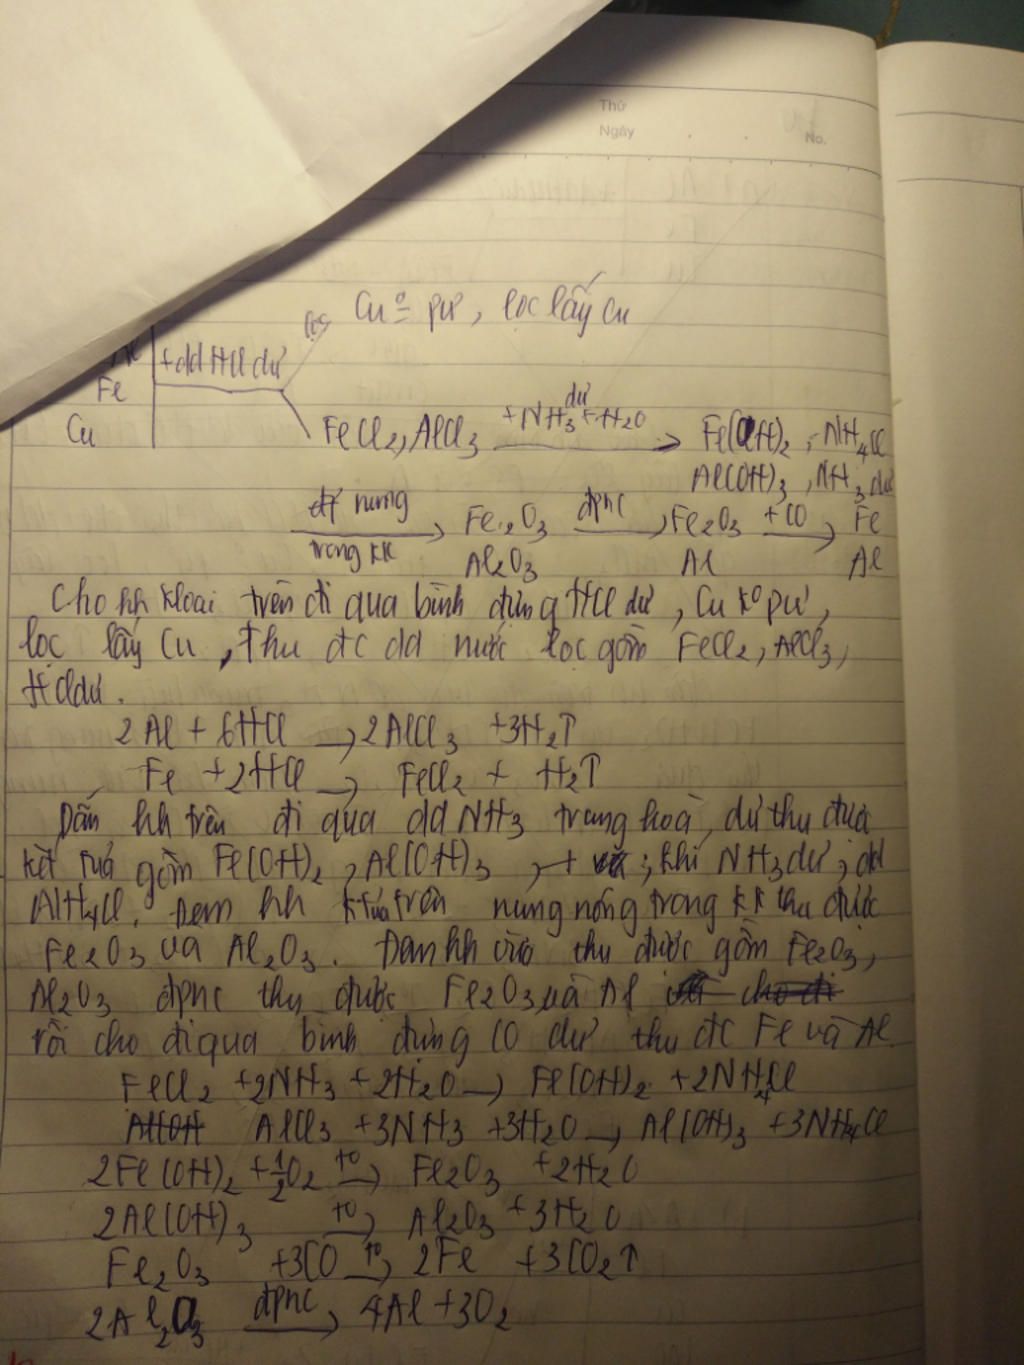 Thứ
Ngày
No.
lọc Cu k⁰ pư, lọc lấy Cu
Al +dd HCl dư
Fe
Cu
FeCl₂, AlCl₃ +NH₃ dư + H₂O → Fe(OH)₂, NH₄Cl
Al(OH)₃, NH₃ dư
nung trong kk → Fe₂O₃ đpnc → Fe₂O₃ +CO → Fe
Al₂O₃ Al Al
Cho hh kloai trên đi qua bình đựng HCl dư, Cu k⁰ pư,
lọc lấy Cu, thu đc dd nước lọc gồm FeCl₂, AlCl₃,
HCl dư.
2Al + 6HCl → 2AlCl₃ +3H₂↑
Fe +2HCl → FeCl₂ + H₂↑
Dẫn hh trên đi qua dd NH₃ trung hoà, dư thu được
kết tuả gồm Fe(OH)₂, Al(OH)₃, + ; khí NH₃ dư; dd
NH₄Cl. Đem hh ktủa trên nung nóng trong kk thu được
Fe₂O₃ và Al₂O₃. Đem hh vừa thu được gồm Fe₂O₃,
Al₂O₃ đpnc thu được Fe₂O₃ và Al cho đi
rồi cho đi qua bình đựng CO dư thu đc Fe và Al
FeCl₂ +2NH₃ +2H₂O → Fe(OH)₂ +2NH₄Cl
AlCl₃ +3NH₃ +3H₂O → Al(OH)₃ +3NH₄Cl
2Fe(OH)₂ +1/2O₂ t⁰→ Fe₂O₃ +2H₂O
2Al(OH)₃ t⁰→ Al₂O₃ +3H₂O
Fe₂O₃ +3CO t⁰→ 2Fe +3CO₂↑
2Al₂O₃ đpnc → 4Al +3O₂